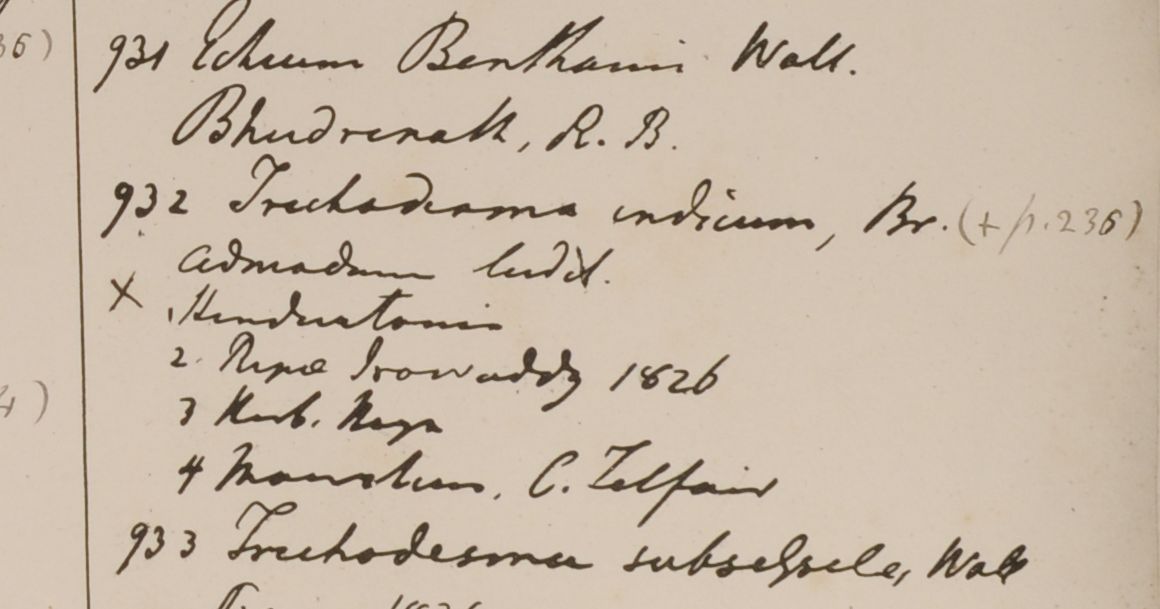 36)
931 Echium Benthami Wall.
Bhudrenath, R. B.
932 Trichodesma indicum, Br. (+ p. 236)
admodum ludit.
X 1 Hindustania
2 Ripæ Irowaddy 1826
3 Herb. Heyn
4 Mauritius, C. Telfair
4)
933 Trichodesma subsessile, Wall
1826